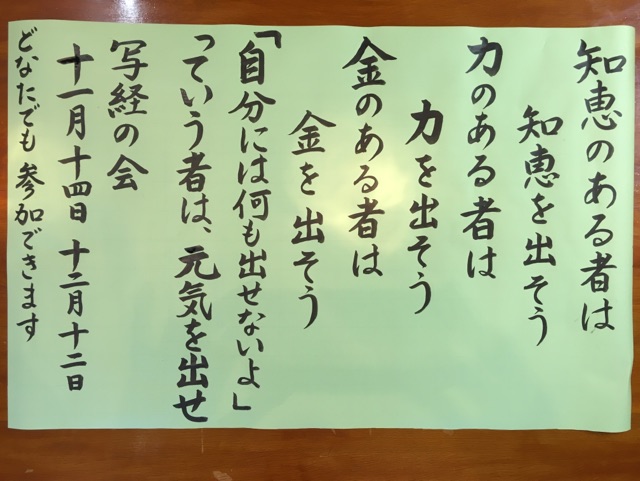 知恵のある者は
知恵を出そう
力のある者は
力を出そう
金のある者は
金を出そう
「自分には何も出せないよ」
っていう者は、元気を出せ
写経の会
十一月十四日 十二月十二日
どなたでも参加できます